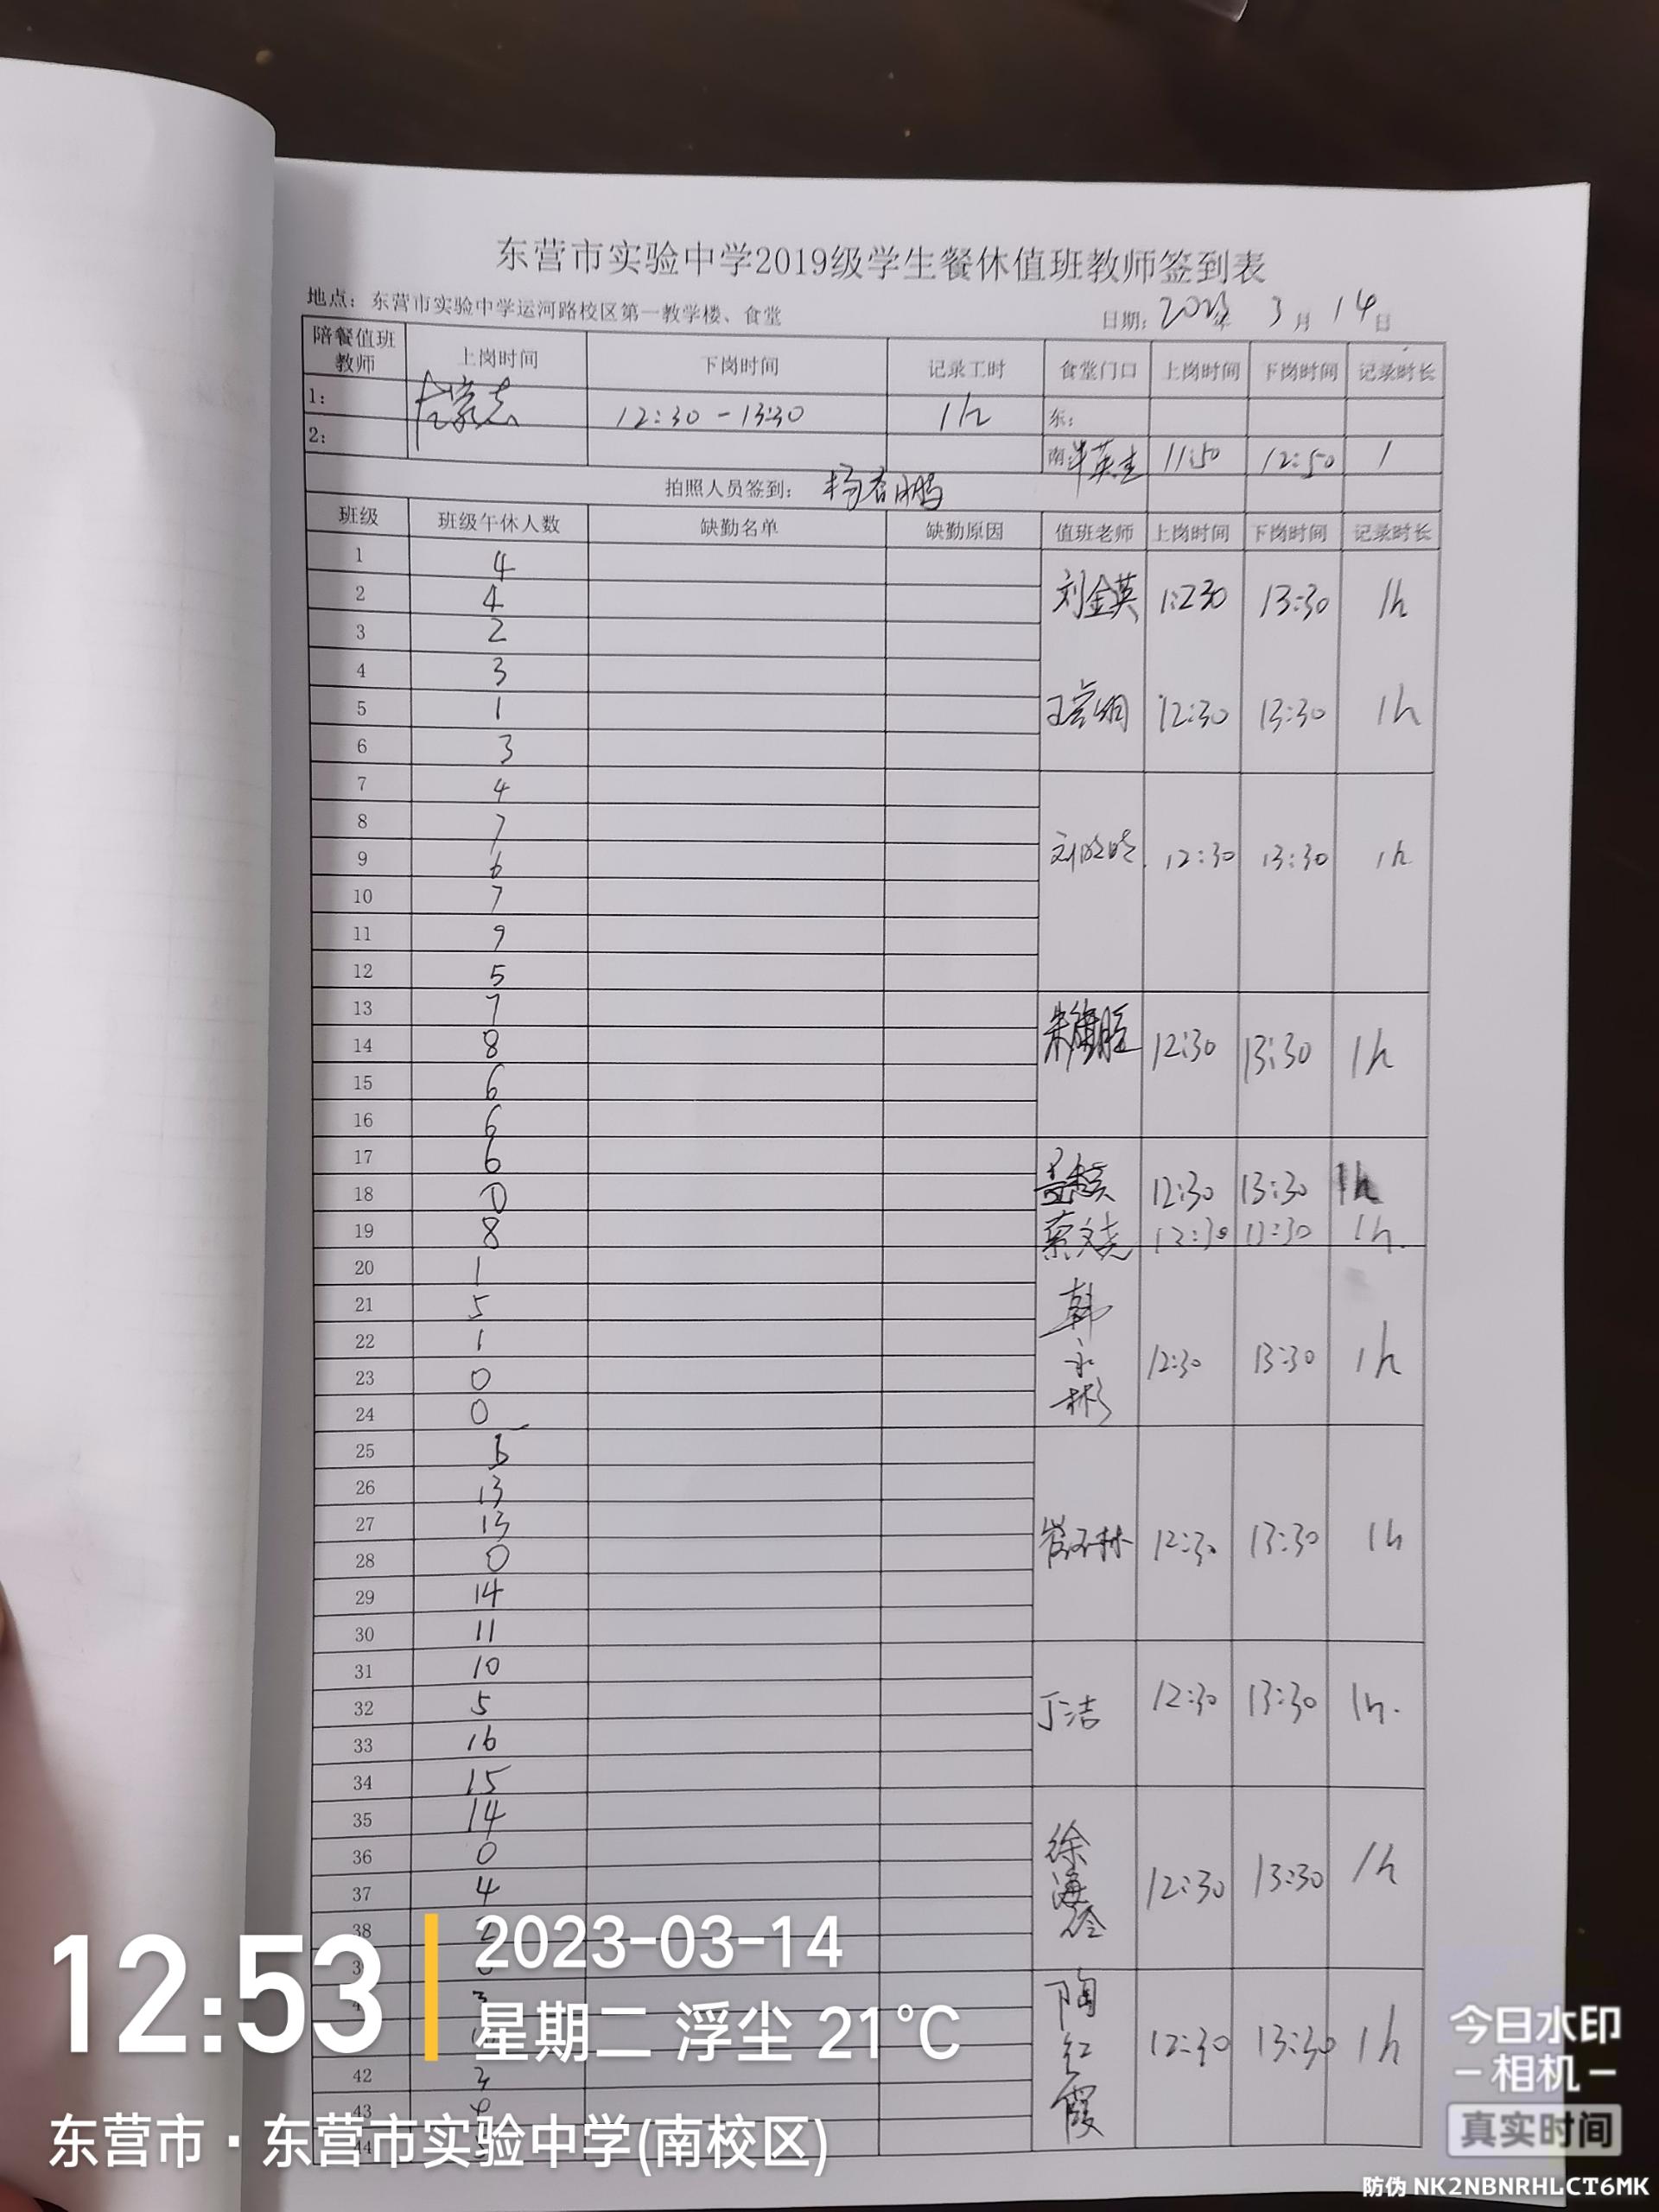 东营市实验中学2019级学生餐休值班教师签到表
地点：东营市实验中学运河路校区第一教学楼、食堂 日期：2023年 3月 14日
陪餐值班教师 上岗时间 下岗时间 记录工时 食堂门口 上岗时间 下岗时间 记录时长
1: 12:30-13:30 1h 东：
2: 南: 11:50 12:50 1
拍照人员签到：
班级 班级午休人数 缺勤名单 缺勤原因 值班老师 上岗时间 下岗时间 记录时长
1 4
2 4 刘金英 1:230 13:30 1h
3 2
4 3
5 1 12:30 13:30 1h
6 3
7 4
8 7
9 6 12:30 13:30 1h
10 7
11 9
12 5
13 7
14 8 12:30 13:30 1h
15 6
16 6
17 6
18 0 12:30 13:30 1h
19 8 12:30 13:30 1h.
20 1
21 5 韩永彬
22 1 12:30 13:30 1h
23 0
24 0
25
26 13
27 13
28 0 12:30 13:30 1h
29 14
30 11
31 10
32 5 丁洁 12:30 13:30 1h.
33 16
34 15
35 14
36 0 徐海
37 4 12:30 13:30 1h
38
陶红霞 12:30 13:30 1h
42 3
43
44
12:53
2023-03-14
星期二 浮尘 21°C
东营市·东营市实验中学(南校区)
今日水印
-相机-
真实时间
防伪 NK2NBNRHLCT6MK